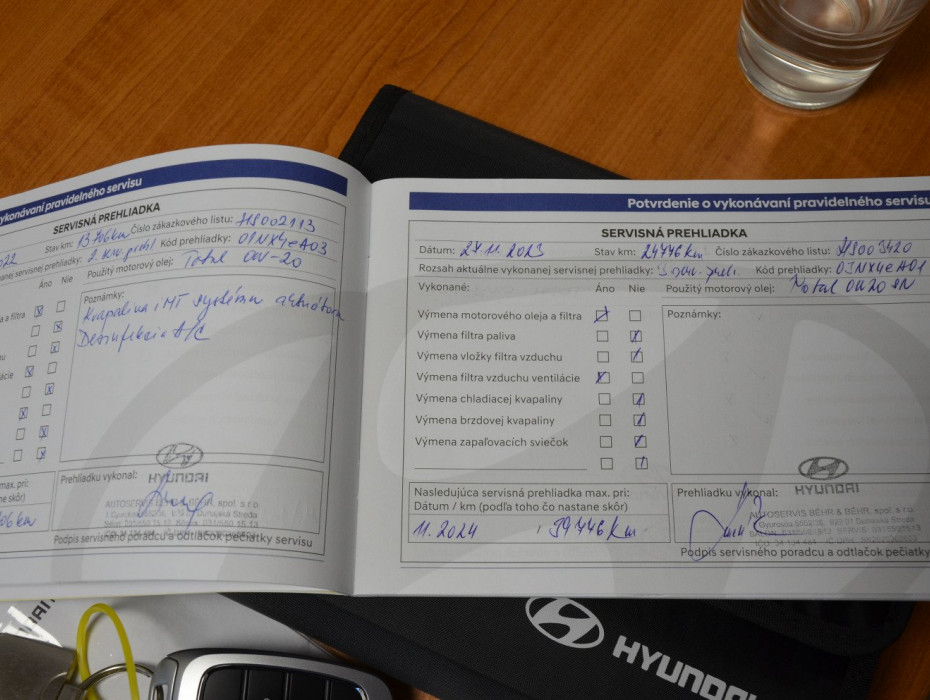 vykonávaní pravidelného servisu
SERVISNÁ PREHLIADKA
Stav km: 13 706 km Číslo zákazkového listu: 718002113
servisnej prehliadky: Kód prehliadky: 01NX4eA03
Áno Nie Použitý motorový olej: Total 0W-20
Poznámky:
a filtra
Kvapalina iMT systému
Dezinfekcia A/C
Prehliadku vykonal:
HYUNDAI
AUTOSERVIS BÉHR & BÉHR, spol. s r.o.
Podpis servisného poradcu a odtlačok pečiatky servisu
max. pri:
skôr)
Potvrdenie o vykonávaní pravidelného servisu
SERVISNÁ PREHLIADKA
Dátum: 27.11.2023 Stav km: 24446 km Číslo zákazkového listu: 718003420
Rozsah aktuálne vykonanej servisnej prehliadky: Kód prehliadky: 01NX4eA01
Vykonané: Áno Nie Použitý motorový olej: Total 0W20
Výmena motorového oleja a filtra
Poznámky:
Výmena filtra paliva
Výmena vložky filtra vzduchu
Výmena filtra vzduchu ventilácie
Výmena chladiacej kvapaliny
Výmena brzdovej kvapaliny
Výmena zapaľovacích sviečok
Nasledujúca servisná prehliadka max. pri:
Dátum / km (podľa toho čo nastane skôr)
11.2024 , 39446 km
Prehliadku vykonal:
HYUNDAI
AUTOSERVIS BÉHR & BÉHR
Podpis servisného poradcu a odtlačok pečiatky
HYUNDAI